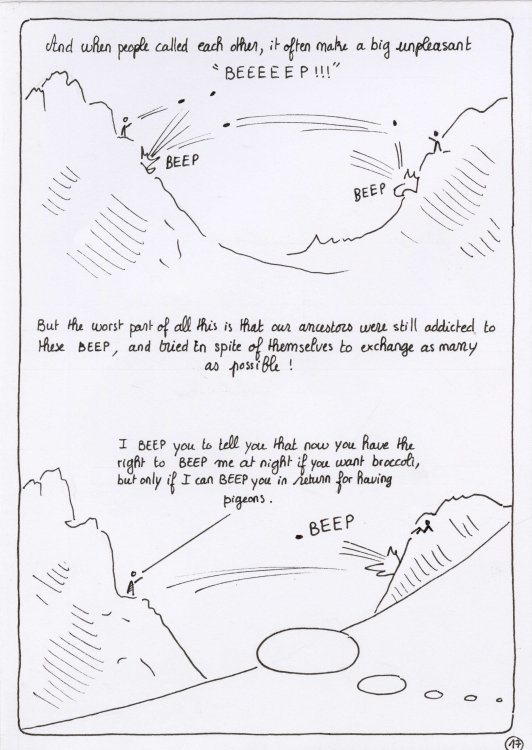 And when people called each other, it often make a big unpleasant
"BEEEEEP!!!"
BEEP
BEEP
But the worst part of all this is that our ancestors were still addicted to
these BEEP, and tried in spite of themselves to exchange as many
as possible !
I BEEP you to tell you that now you have the
right to BEEP me at night if you want broccoli,
but only if I can BEEP you in return for having
pigeons.
BEEP
17